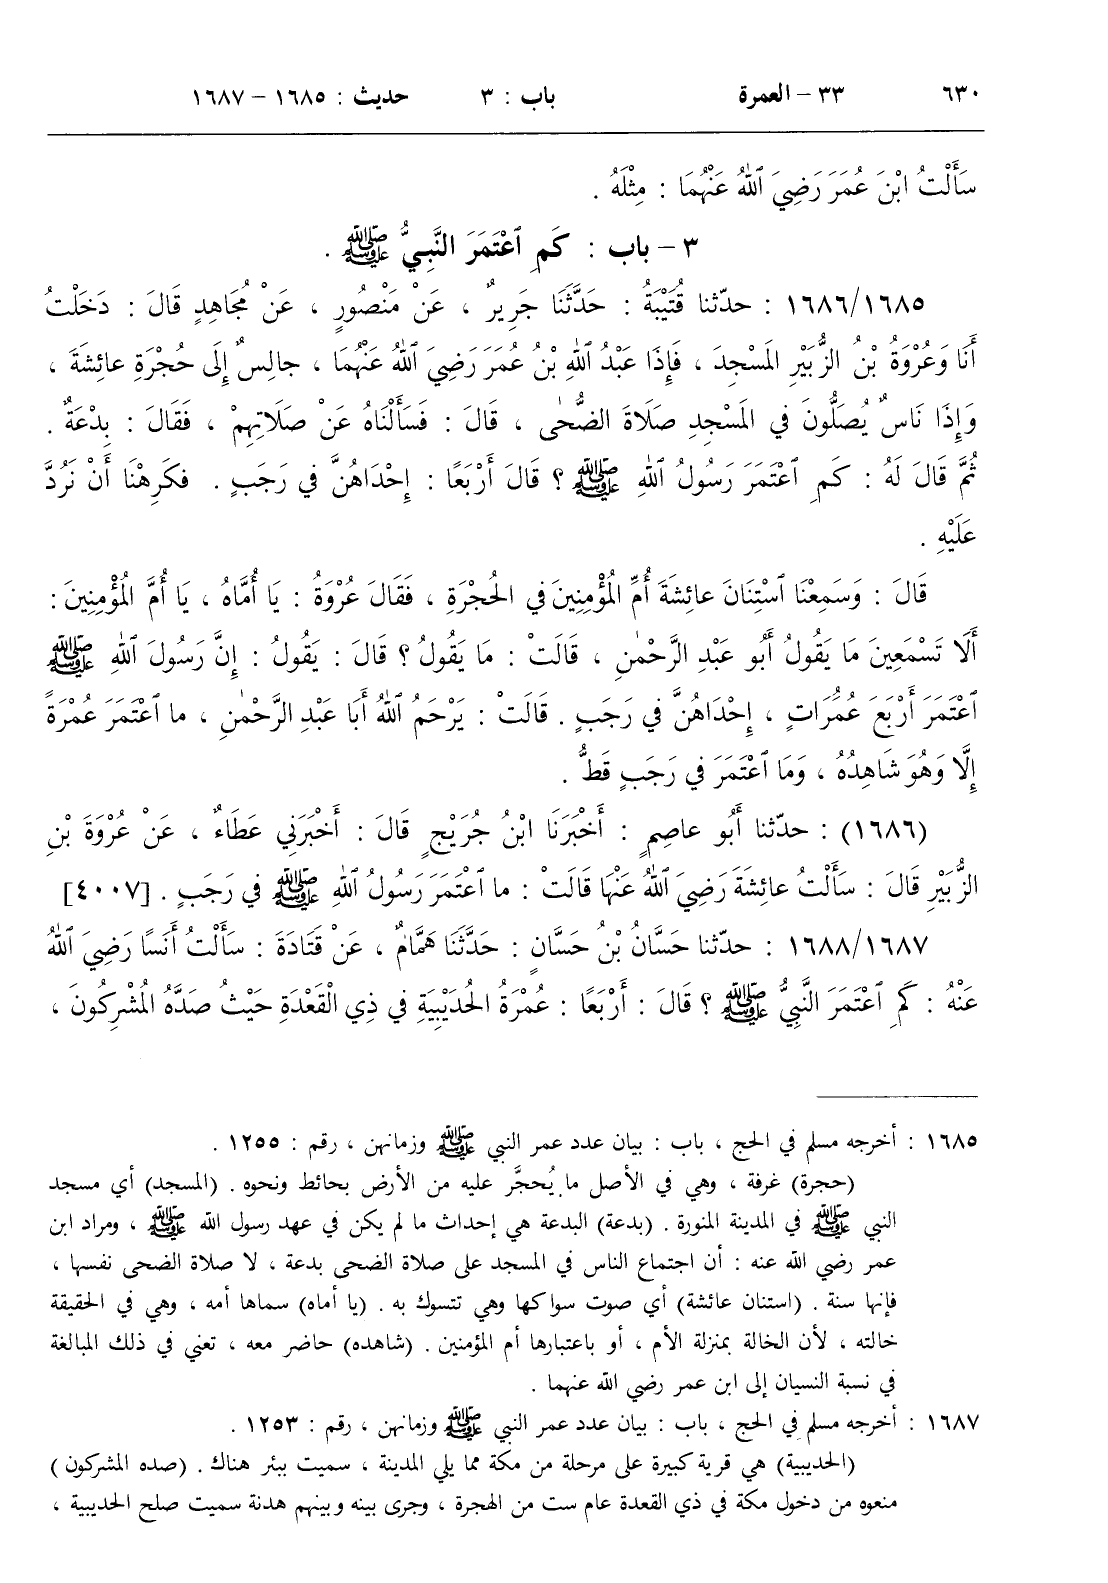 ٦٣٠ ٣٣ – العمرة باب : ٣ حديث : ١٦٨٥ – ١٦٨٧
سَأَلْتُ ابْنَ عُمَرَ رَضِيَ ٱللهُ عَنْهُمَا : مِثْلَهُ .
٣ – باب : كَمِ ٱعْتَمَرَ النَّبِيُّ ﷺ .
١٦٨٦/١٦٨٥ : حدّثنا قُتَيْبَةُ : حَدَّثَنَا جَرِيرٌ ، عَنْ مَنْصُورٍ ، عَنْ مُجَاهِدٍ قَالَ : دَخَلْتُ
أَنَا وَعُرْوَةُ بْنُ الزُّبَيْرِ المَسْجِدَ ، فَإِذَا عَبْدُ ٱللهِ بْنُ عُمَرَ رَضِيَ ٱللهُ عَنْهُمَا ، جالِسٌ إِلَى حُجْرَةِ عائِشَةَ ،
وَإِذَا نَاسٌ يُصَلُّونَ في المَسْجِدِ صَلَاةَ الضُّحٰى ، قَالَ : فَسَأَلْنَاهُ عَنْ صَلَاتِهِمْ ، فَقَالَ : بِدْعَةٌ .
ثُمَّ قَالَ لَهُ : كَمِ ٱعْتَمَرَ رَسُولُ ٱللهِ ﷺ ؟ قَالَ أَرْبَعًا : إِحْدَاهُنَّ في رَجَبٍ . فكَرِهْنَا أَنْ نَرُدَّ
عَلَيْهِ .
قَالَ : وَسَمِعْنَا ٱسْتِنَانَ عائِشَةَ أُمِّ المُؤْمِنِينَ في الحُجْرَةِ ، فَقَالَ عُرْوَةُ : يَا أُمَّاهُ ، يَا أُمَّ المُؤْمِنِينَ :
أَلَا تَسْمَعِينَ مَا يَقُولُ أَبُو عَبْدِ الرَّحْمٰنِ ، قَالَتْ : مَا يَقُولُ ؟ قالَ : يَقُولُ : إِنَّ رَسُولَ ٱللهِ ﷺ
ٱعْتَمَرَ أَرْبَعَ عُمُرَاتٍ ، إِحْدَاهُنَّ في رَجَبٍ . قَالَتْ : يَرْحَمُ ٱللهُ أَبَا عَبْدِ الرَّحْمٰنِ ، ما ٱعْتَمَرَ عُمْرَةً
إِلَّا وَهُوَ شَاهِدُهُ ، وَمَا ٱعْتَمَرَ في رَجَبٍ قَطُّ .
(١٦٨٦) : حدّثنا أَبُو عاصِمٍ : أَخْبَرَنَا ابْنُ جُرَيْجٍ قَالَ : أَخْبَرَنِي عَطَاءٌ ، عَنْ عُرْوَةَ بْنِ
الزُّبَيْرِ قَالَ : سَأَلْتُ عائِشَةَ رَضِيَ ٱللهُ عَنْهَا قَالَتْ : ما ٱعْتَمَرَ رَسُولُ ٱللهِ ﷺ في رَجَبٍ . [٤٠٠٧]
١٦٨٨/١٦٨٧ : حدّثنا حَسَّانُ بْنُ حَسَّانٍ : حَدَّثَنَا هَمَّامٌ ، عَنْ قَتَادَةَ : سَأَلْتُ أَنَسًا رَضِيَ ٱللهُ
عَنْهُ : كَمِ ٱعْتَمَرَ النَّبِيُّ ﷺ ؟ قَالَ : أَرْبَعًا : عُمْرَةُ الحُدَيْبِيَةِ في ذِي الْقَعْدَةِ حَيْثُ صَدَّهُ المُشْرِكُونَ ،
١٦٨٥ : أخرجه مسلم في الحج ، باب : بيان عدد عمر النبي ﷺ وزمانهن ، رقم : ١٢٥٥ .
(حجرة) غرفة ، وهي في الأصل ما يُحجَّر عليه من الأرض بحائط ونحوه . (المسجد) أي مسجد
النبي ﷺ في المدينة المنورة . (بدعة) البدعة هي إحداث ما لم يكن في عهد رسول الله ﷺ ، ومراد ابن
عمر رضي الله عنه : أن اجتماع الناس في المسجد على صلاة الضحى بدعة ، لا صلاة الضحى نفسها ،
فإنها سنة . (استنان عائشة) أي صوت سواكها وهي تتسوك به . (يا أماه) سماها أمه ، وهي في الحقيقة
خالته ، لأن الخالة بمنزلة الأم ، أو باعتبارها أم المؤمنين . (شاهده) حاضر معه ، تعني في ذلك المبالغة
في نسبة النسيان إلى ابن عمر رضي الله عنهما .
١٦٨٧ : أخرجه مسلم في الحج ، باب : بيان عدد عمر النبي ﷺ وزمانهن ، رقم : ١٢٥٣ .
(الحديبية) هي قرية كبيرة على مرحلة من مكة مما يلي المدينة ، سميت ببئر هناك . (صده المشركون)
منعوه من دخول مكة في ذي القعدة عام ست من الهجرة ، وجرى بينه وبينهم هدنة سميت صلح الحديبية ،